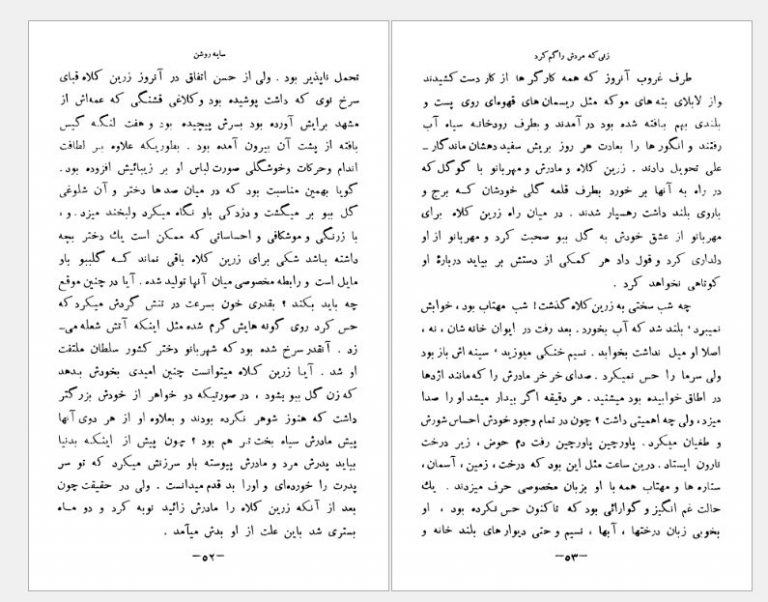 سایه روشن
تحمل ناپذیر بود . ولی از حسن اتفاق در آنروز زرین کلاه قبای
سرخ نوی که داشت پوشیده بود وکلاغی قشنگی که عمه‌اش از
مشهد برایش آورده بود بسرش پیچیده بود و هفت لنگه گیس
بافته از پشت آن بیرون آمده بود . بطوریکه علاوه بر لطافت
اندام وحرکات وخوشگلی صورت لباس او بر زیبائیش افزوده بود.
گویا بهمین مناسبت بود که در میان صدها دختر و آن شلوغی
گل ببو بر میگشت و دزدکی باو نگاه میکرد ولبخند میزد . و ،
با زرنگی و موشکافی و احساساتی که ممکن است یك دختر بچه
داشته باشد شکی برای زرین کلاه باقی نماند کـه گلببو باو
مایل است و رابطه مخصوصی میان آنها تولید شده . آیا در چنین موقع
چه باید بکند ؟ بقدری خون بسرعت در تنش گردش میکرد که
حس کرد روی گونه هایش گرم شده مثل اینکه آتش شعله می-
زد . آنقدر سرخ شده بود که شهربانو دختر کشور سلطان ملتفت
او شد . آیا زرین کلاه میتوانست چنین امیدی بخودش بدهد
که زن گل ببو بشود ، در صورتیکه دو خواهر از خودش بزرگتر
داشت که هنوز شوهر نکرده بودند و بعلاوه او از هر دوی آنها
پیش مادرش سیاه بخت تر هم بود ؟ چون پیش از اینکه بدنیا
بیاید پدرش مرد و مادرش پیوسته باو سرزنش میکرد که تو سر
پدرت را خورده‌ای و اورا بد قدم میدانست . ولی در حقیقت چون
بعد از آنکه زرین کلاه را مادرش زائید نوبه کرد و دو مـاه
بستری شد باین علت از او بدش میآمد .
–۵۲–
زنی که مردش را گم کرد
طرف غروب آنروز که همه کارگر ها از کار دست کشیدند
واز لابلای بته های مو که مثل ریسمان های قهوه‌ای روی پست و
بلندی بهم بافته شده بود در آمدند و بطرف رودخانه سیاه آب
رفتند و انگور ها را بعادت هر روز بریش سفید دهشان ماندگار –
علی تحویل دادند . زرین کلاه و مادرش و مهربانو با گوگل که
در راه به آنها بر خورد بطرف قلعه گلی خودشان کـه برج و
باروی بلند داشت رهسپار شدند . در میان راه زرین کلاه برای
مهربانو از عشق خودش به گل ببو صحبت کرد و مهربانو از او
دلداری کرد و قول داد هر کمکی از دستش بر بیاید دربارهٔ او
کوتاهی نخواهد کرد .
چه شب سختی به زرین کلاه گذشت! شب مهتاب بود ، خوابش
نمیبرد، بلند شد که آب بخورد . بعد رفت در ایوان خانه شان ، نه ،
اصلا او میل نداشت بخوابد . نسیم خنکی میوزید، سینه اش باز بود
ولی سرما را حس نمیکرد . صدای خر خر مادرش را که مانند اژدها
در اطاق خوابیده بود میشنید . هر دقیقه اگر بیدار میشد او را صدا
میزد، ولی چه اهمیتی داشت ؟ چون در تمام وجود خودش احساس شورش
و طغیان میکرد . پاورچین پاورچین رفت دم حوض ، زیر درخت
نارون ایستاد . درین ساعت مثل این بود که درخت ، زمین ، آسمان ،
ستاره ها و مهتاب همه با او بزبان مخصوصی حرف میزدند . یك
حالت غم انگیز و گوارائی بود که تاکنون حس نکرده بود ، او
بخوبی زبان درختها ، آبها ، نسیم و حتی دیوار های بلند خانه و
–۵۳–